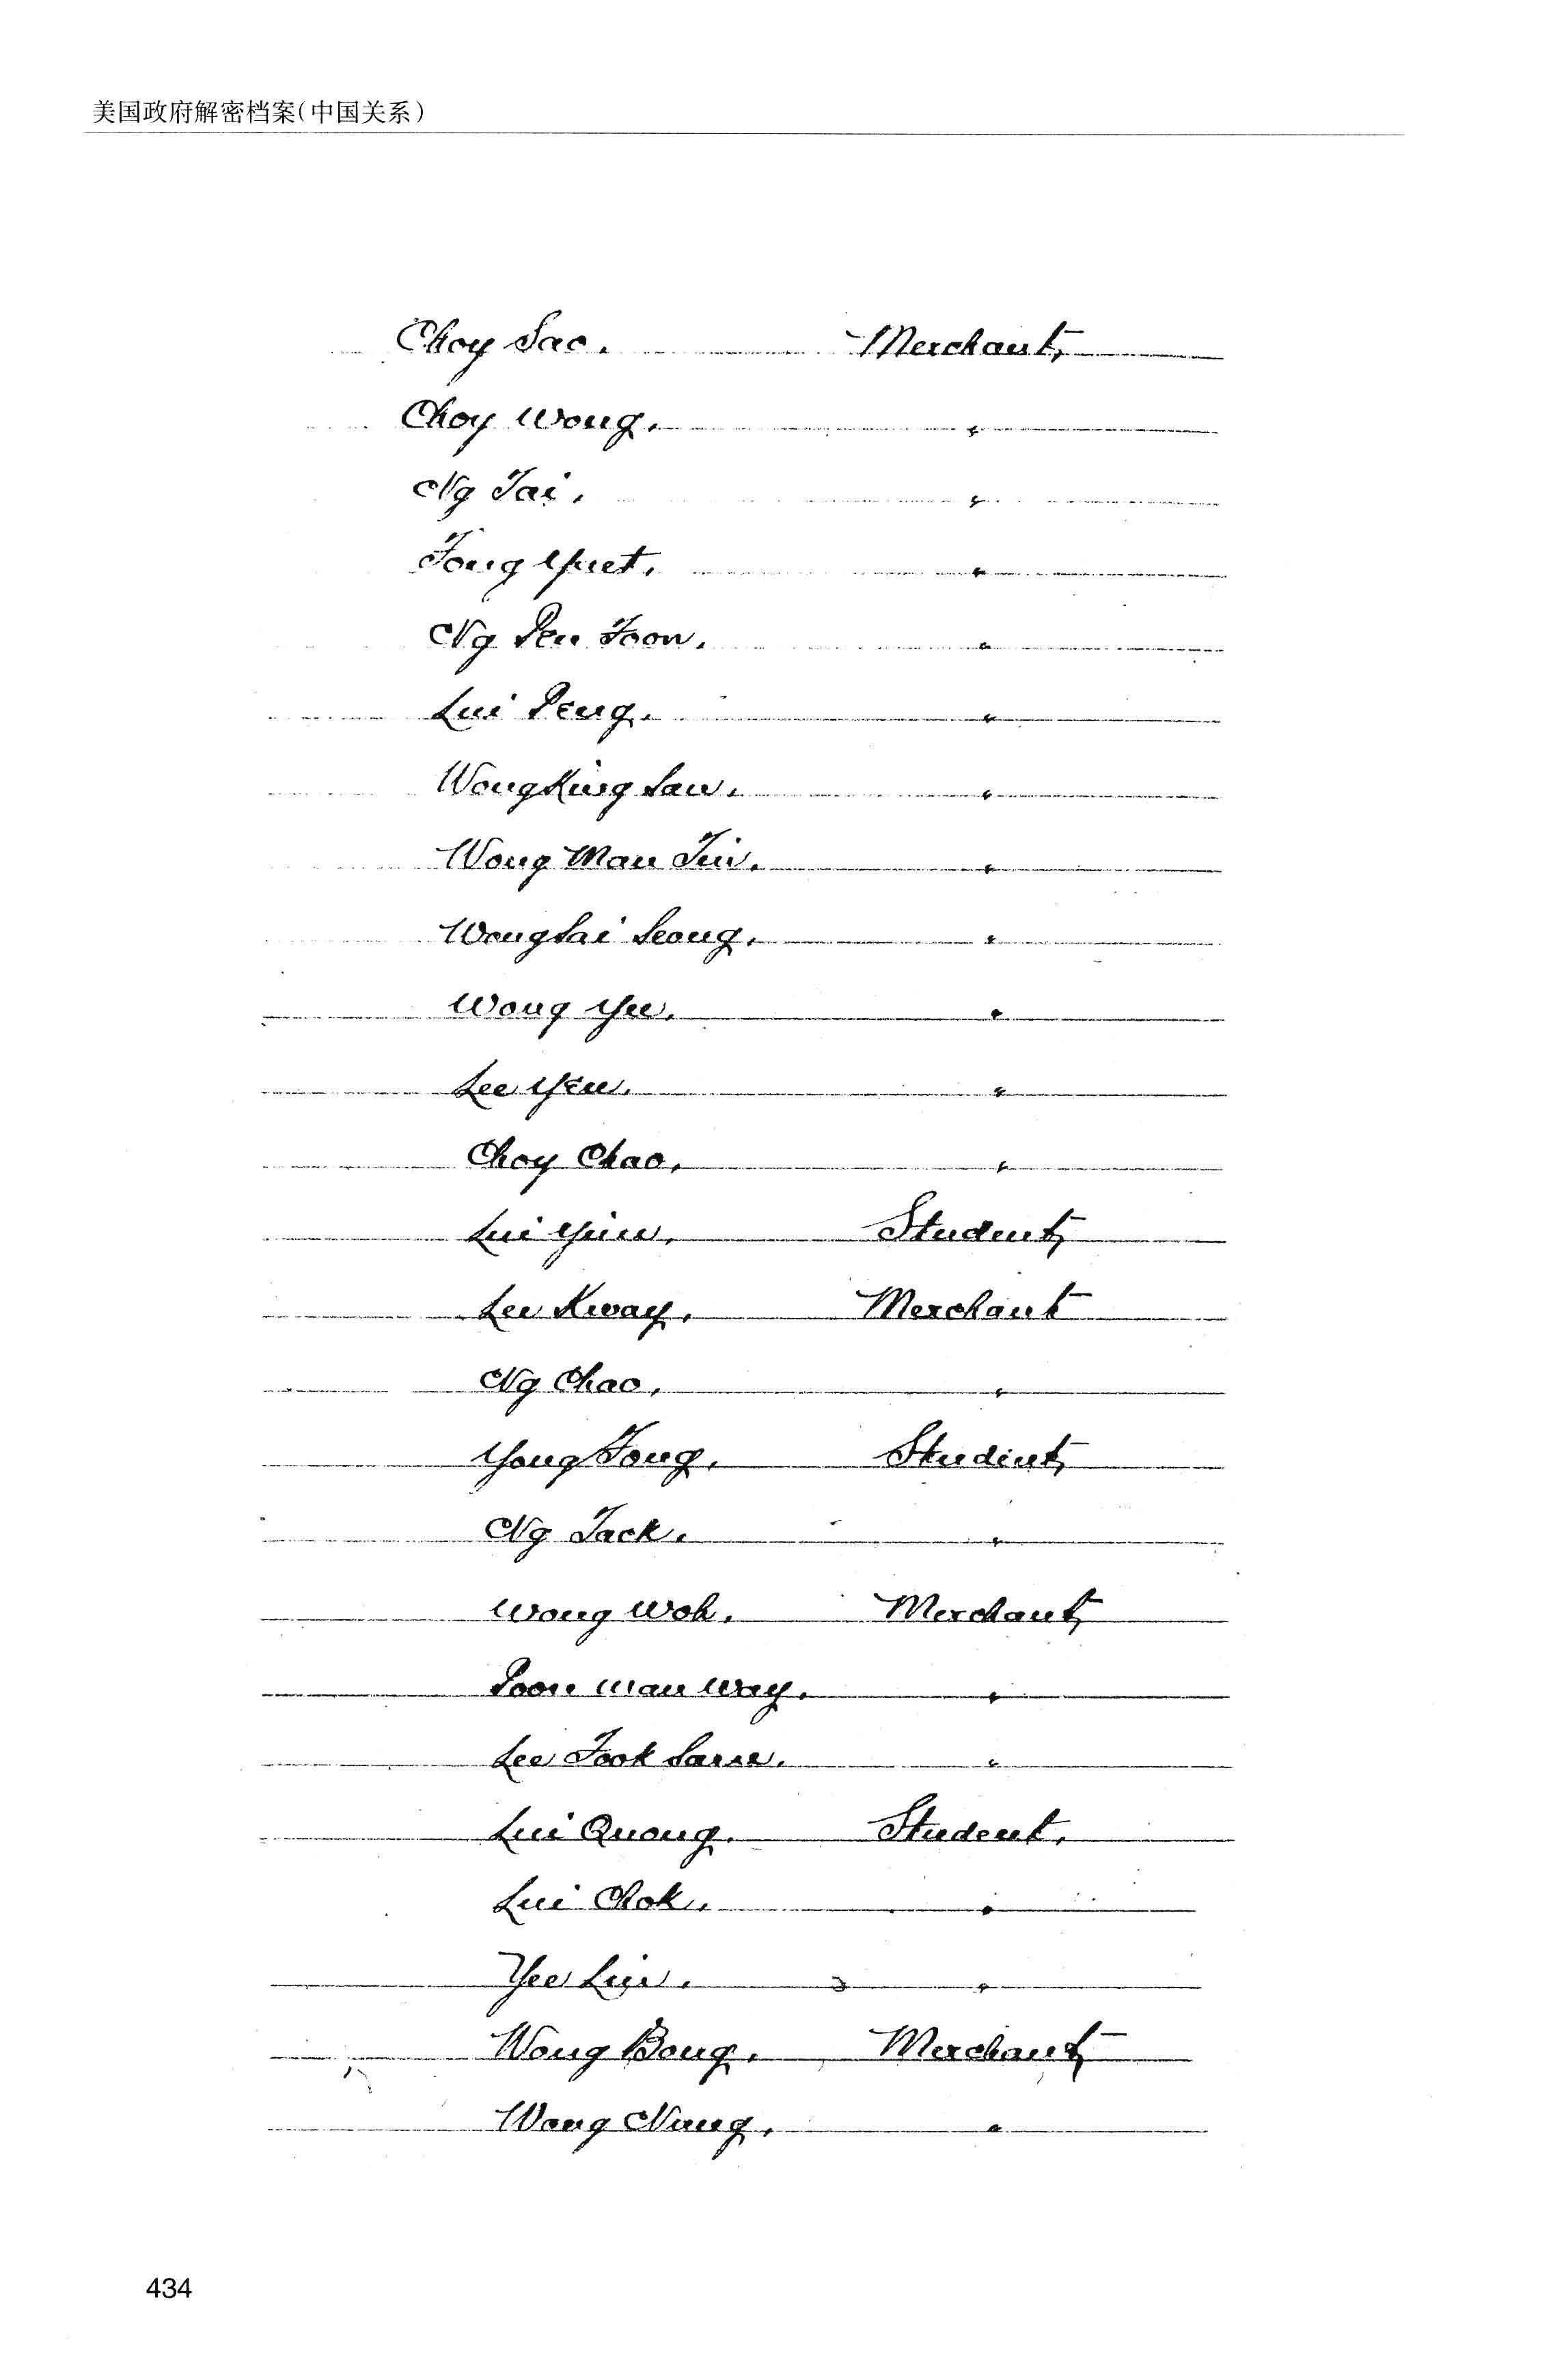 美国政府解密档案(中国关系)
Choy Sao. Merchant,
Choy Wong. "
Ng Tai, "
Tong Yuet, "
Ng Pen Toon. "
Lui Peng. "
Wong King San. "
Wong Man Tin. "
Wong Sai Seong. "
Wong Yee. "
Lee Yen. "
Choy Chao, "
Lui Yuin, Student,
Lee Kway, Merchant
Ng Chao, "
Yong Tong, Student,
Ng Tack. "
Wong Woh. Merchant,
Poon Man Way. "
Lee Took Sam. "
Lui Quong. Student.
Lui Chok. "
Yee Lin. "
Wong Bong. Merchant,
Wong Nung, "
434